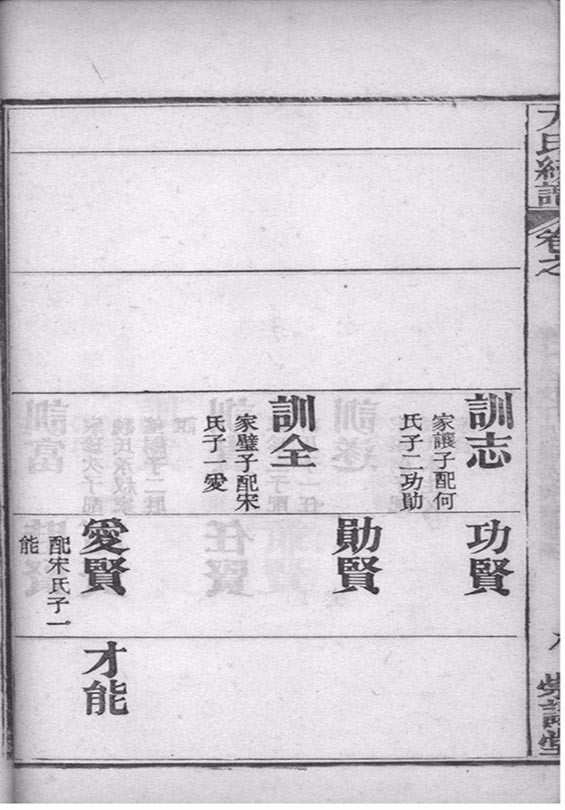 卷之
訓志
家讓子配何
氏子二功勛
訓全
家璧子配宋
氏子一愛
功賢
勛賢
愛賢
配宋氏子一
能
才能